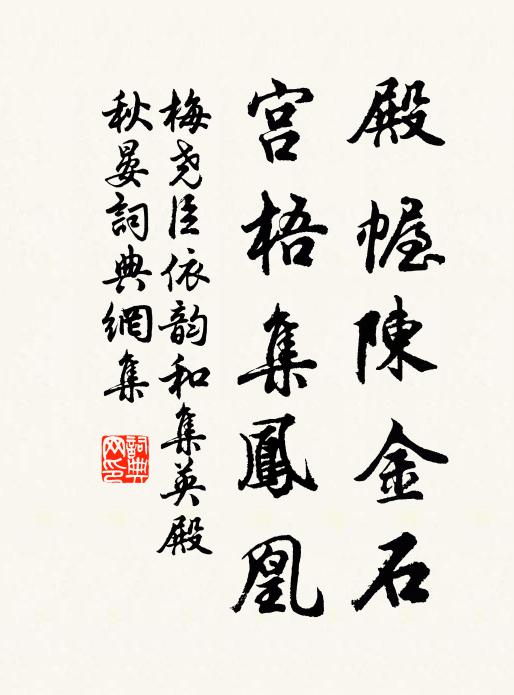 殿幄陳金石
宮梧集鳳凰
梅尧臣依韵和集英殿
秋晏詞典網集
詞典网印